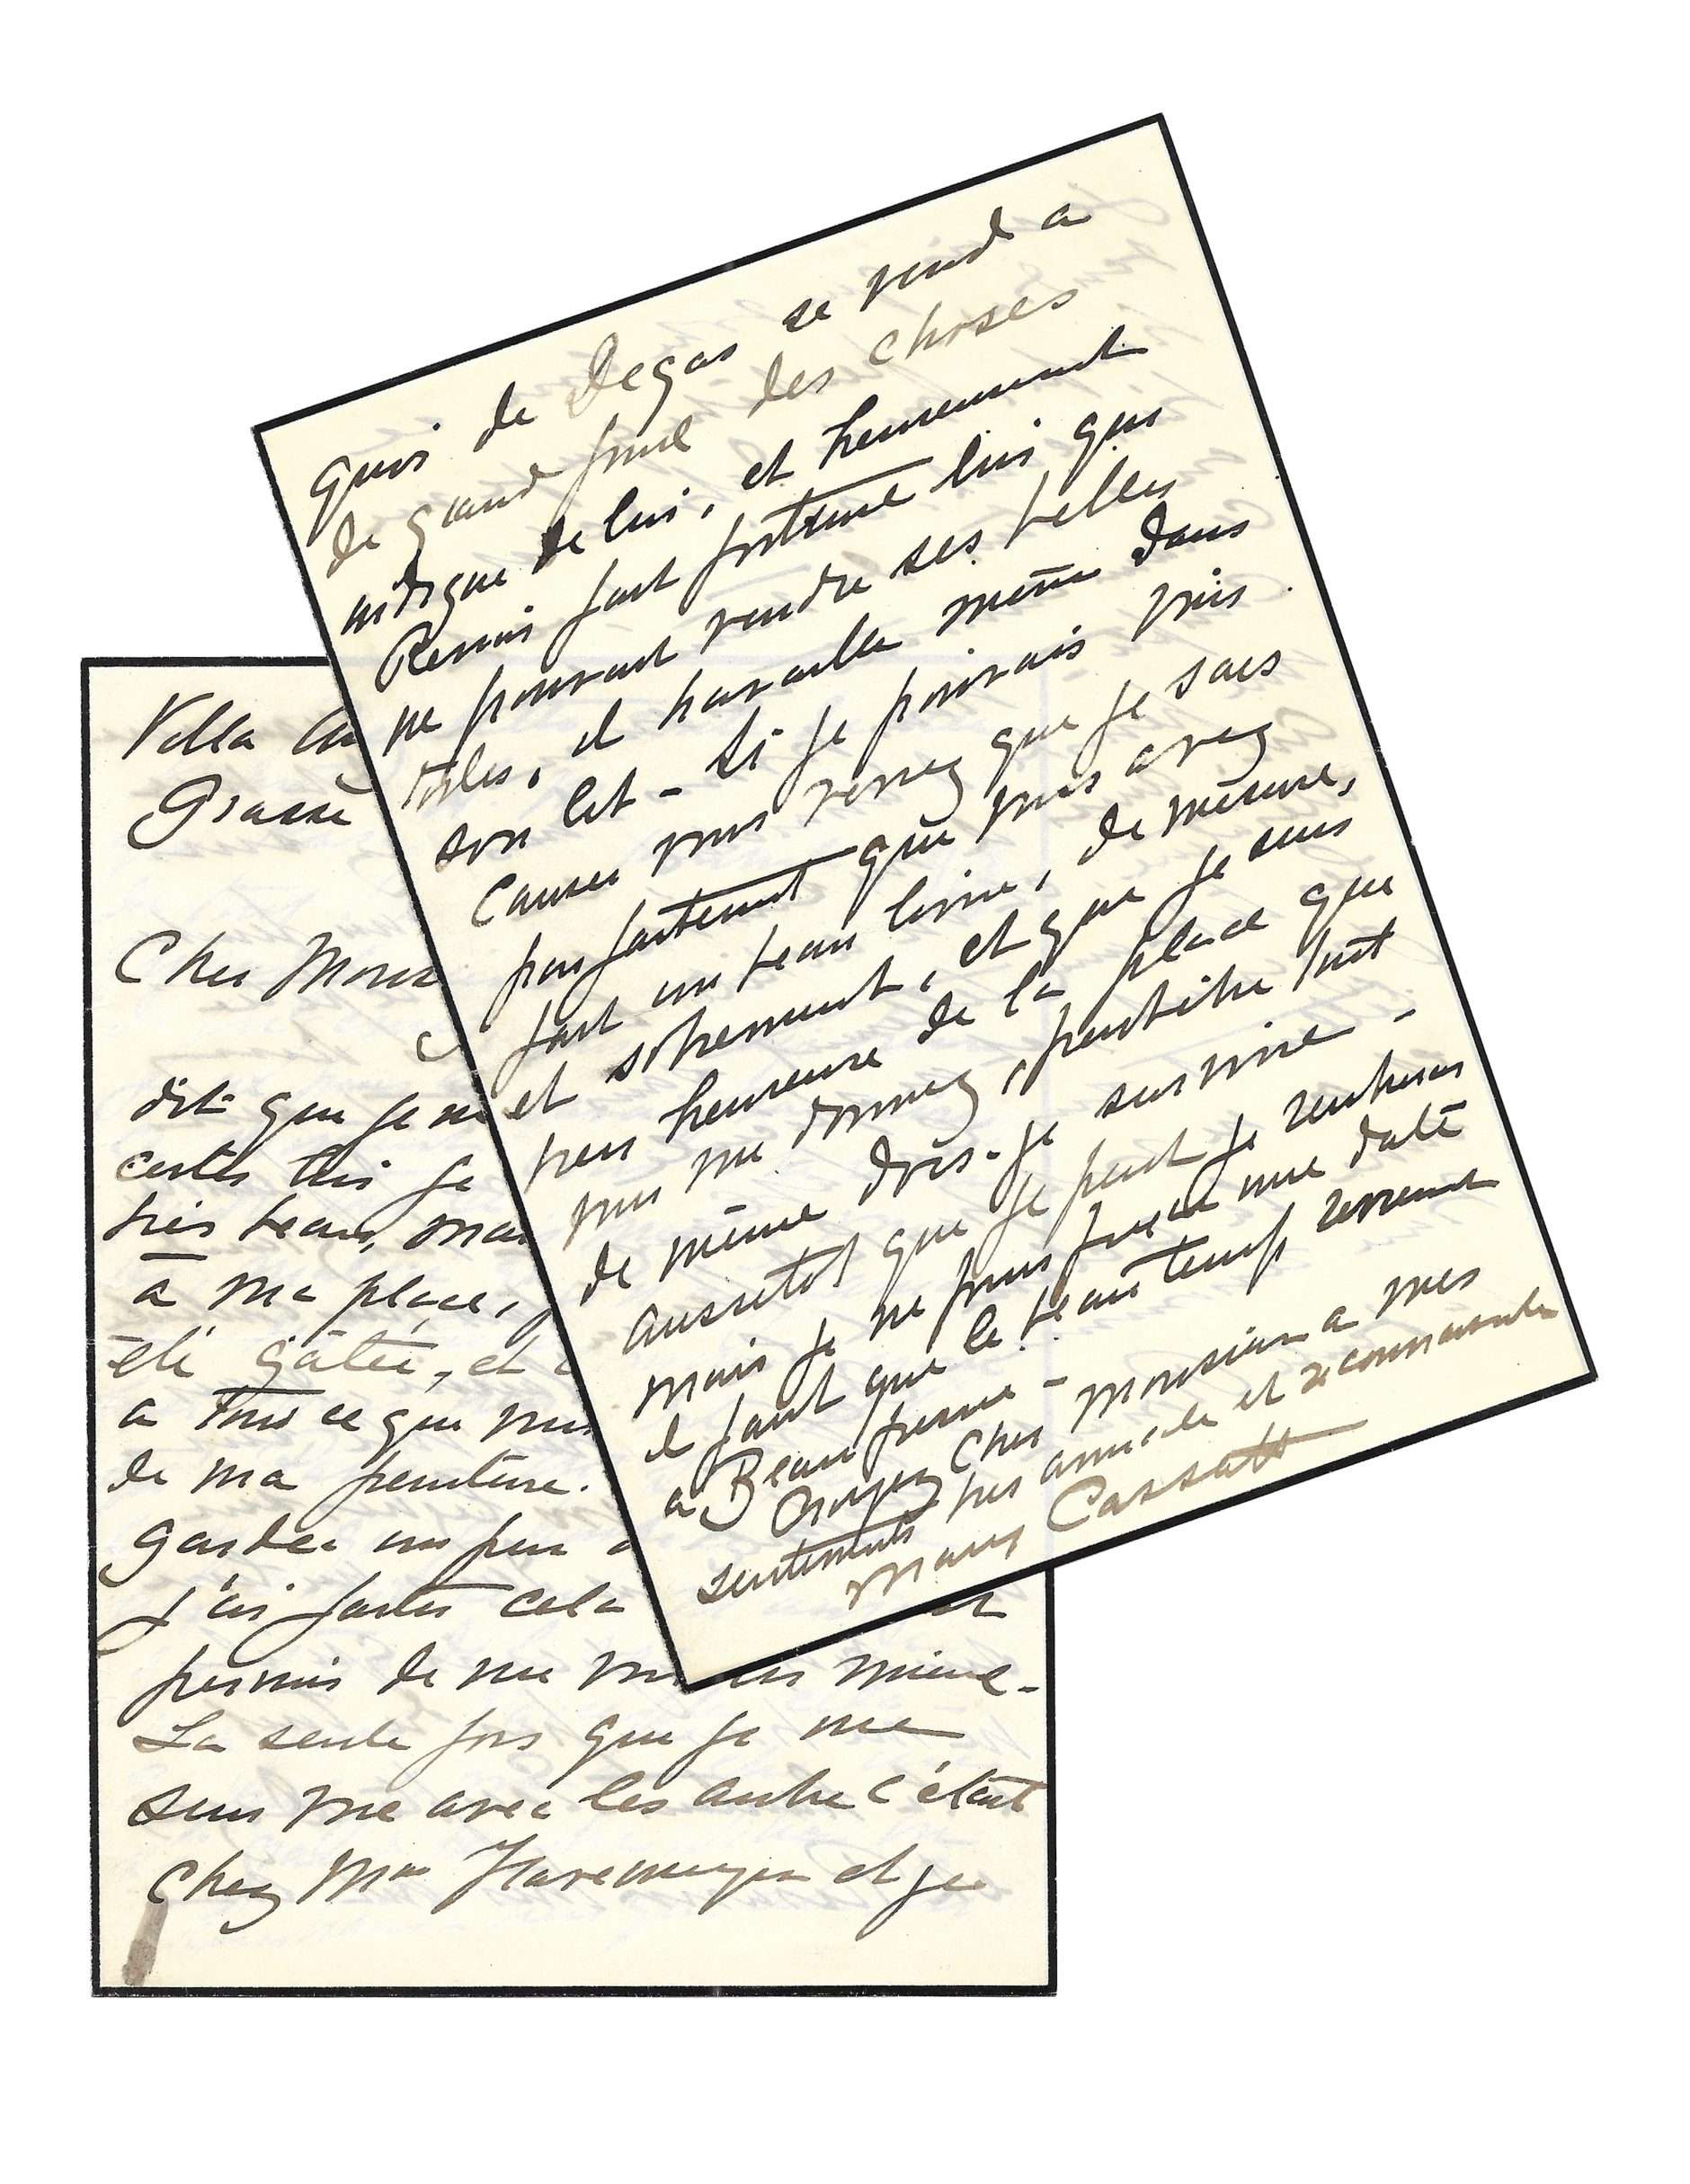 Villa
Grasse
Cher
dit que je
certes
très beau,
à ma place,
été gâtée, et
a tous ce que vous
de ma peinture.
garder un peu
J'ai cela
permis de me mieux -
La seule fois que je me
suis vue avec les autre c'était
chez Mme Havemeyer et je
quoi de Degas se vend a
de grande prix des choses
indigne de lui, et heureusement
Renoir fait fortune lui qui
ne pouvait vendre ses belles
toiles, il travaille même dans
son lit - Si je pouvais vous
causer vous verrez que je sais
parfaitement que vous avez
fait un beau livre, de mesure,
et sobrement, et que je suis
heureuse de la place que
vous me donnez, peutêtre tout
de même dois-je survivre -
aussitot que je peut je rentrerai
mais je ne puis fixer une date
il faut que le beau temp revienne
a Beaufresne -
Croyez Cher monsieur a mes
sentiments amicale et reconnaissante
Mary Cassatt